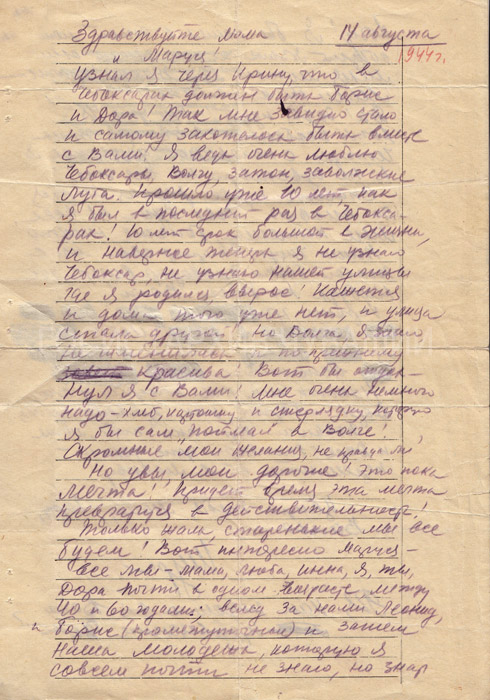 Здравствуйте мама 14 августа
и Маруся! 1944 г.
Узнал я через Ирину, что в
Чебоксарах должен быть Борис
и Дора! Так мне завидно стало
и самому захотелось быть вместе
с Вами! Я ведь очень люблю
Чебоксары, Волгу, затон, заволжские
луга. Прошло уже 10 лет как
я был в последний раз в Чебокса-
рах! 10 лет срок большой в жизни,
и наверное теперь я не узнаю
Чебоксар, не узнаю нашей улицы
где я родился, вырос! Нашего
и дома того уже нет, и улица
стала другой но Волга, я знаю
не изменилась и по прежнему
красива! Вот бы отдох-
нул я с Вами! Мне очень немного
надо - хлеб, картошку и стерлядку, которую
я бы сам "поймал" в Волге!
Скромные мои желания, не правда ли,
Но увы, мои дорогие! Это пока
мечта! Придет время эта мечта
превратится в действительность!
Только жаль, старенькие мы все
будем! Вот интересно Маруся -
Все мы - мама, Люба, Инна, я, ты,
Дора почти в одном возрасте, между
40 и 60 годами; вслед за нами Леонид,
и Борис (кроме) и затем
наша молодежь, которую я
совсем почти не знаю, но знар